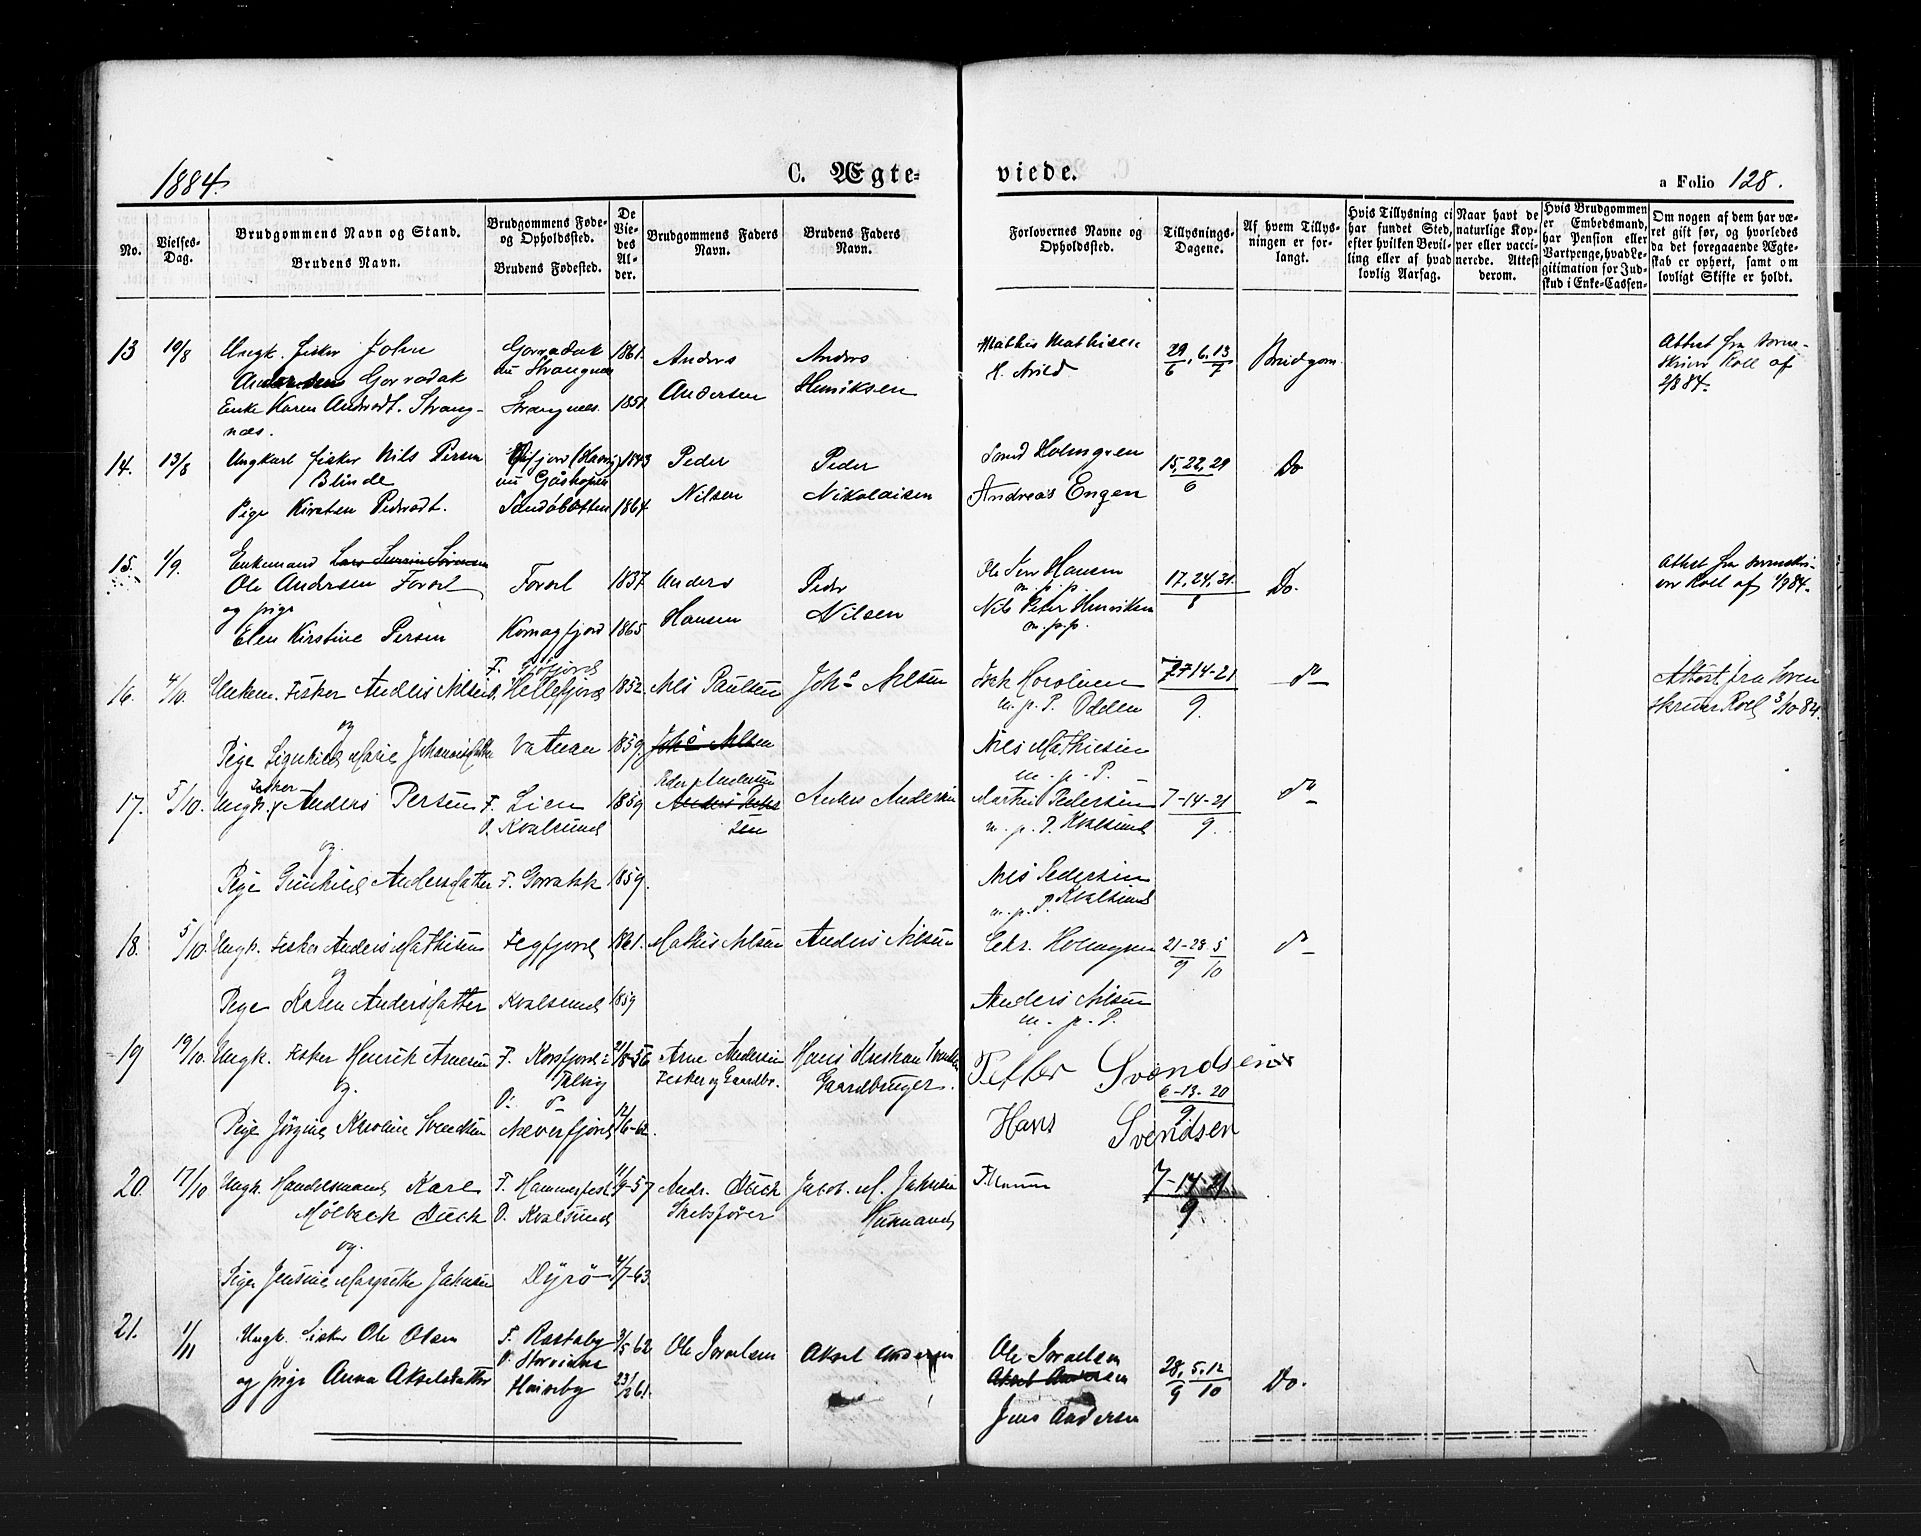 1884.
C. Ægte-
viede.
a Folio 128.
No.
Vielses-
Dag.
Brudgommens Navn og Stand.
Brudens Navn.
Brudgommens Føde-
og Opholdssted.
Brudens Fødested.
De
Vie-
des
Al-
der.
Brudgommens Faders
Navn.
Brudens Faders
Navn.
Forlovernes Navne og
Opholdssted.
Tillysnings-
Dagene.
Af hvem Tillys-
ningen er for-
langt.
Hvis Tillysning ei
har fundet Sted,
efter hvilken Bevil-
ling eller af hvad
lovlig Aarsag.
Naar havt de
naturlige Kop-
per eller vacci-
nerede. Attest
derom.
Hvis Brudgommen
er Embedsmand,
har Pension eller
Vartpenge, hvad Le-
gitimation for Ind-
skud i Enke-Cassen-
Om nogen af dem har væ-
ret gift før, og hvorledes
da det foregaaende Ægte-
skab er ophørt, samt om
lovligt Skifte er holdt.
13 10/8 Ungk. fisker John
Andersen Gorradak
Enke Karen Andersdt. Strang-
næs.
Gorradak
nu Strangnes
Strangnes.
1861.
1851.
Anders
Andersen
Anders
Henriksen
Mathis Mathisen
H. Arild
29/6, 6. 13/7
Brudgom.
Attest fra Soren-
skriver Koll af
2/8 84.
14. 13/8 Ungkarl fisker Nils Persen
Blinde
Pige Kirsten Pedersdt.
Sandøbotten
1843
1864
Peder
Nilsen
Peder
Nikolaisen
Holmgren
Andreas Engen
15, 22, 29
6
Do
15. 1/9. Enkemand
Ole Andersen Forsol
og pige
Elen Kirstine Persen
Forsol
Komagfjord
1837.
1865
Anders
Hansen
Peder
Nilsen
Ole Hansen
m. p. p.
Nils Peter Henriksen
m. p. p.
17, 24, 31
8
Do.
Attest fra Sorenskri-
ver Koll af 1/9 84.
16. 4/10. Enkem. Fisker Anders Nilsen
og
Pige Signhild Marie Johannesdatter
F.
Hellefjord
1852.
1859.
Nils Paulsen
Joh.s Nilsen
Joh.s Nilsen
m. p. P.
Nils Mathisen
m. p. P.
7-14-21
9.
do
Attest fra Soren
skriver Koll 3/10 84.
17. 5/10. Ungk. Fisker Anders Persen
og
Pige Gunhild Andersdatter
F. Lien
O. Kvalsund
F. Gorrakk
1859
1859.
Peder Andersen
Anders Peder
sen
Anders Andersen
Martin Pedersen
m. p. P. Kvalsund
Nils Pedersen
m. p. P. Kvalsund
7-14-21
9.
do
18. 5/10. Ungk. Fisker Anders Mathisen
og
Pige Karen Andersdatter
Fegfjord
Kvalsund
1861.
1859
Mathis Nilsen
Anders Nilsen
Chr. Holmgren
Anders Nilsen
m. p. P.
21-28/9 5/10
do
19 19/10. Ungk. Fisker Henrik Arnesen
og.
Pige Jørgine Karoline Svendsen
F. Korsfjord i
Talvig
O.
Neverfjord
2/8-56
12/6-62.
Arne Andersen
Fisker og Gaardbr.
Hans Kristian Svendsen
Gaardbruger.
Petter Svendsen
6-13-20
9.
Hans Svendsen
20. 17/10 Ungk. Handelsmand Karl
Molbeck Buck
og.
Pige Jensine Margrethe Jakobsen
F. Hammerfest
O. Kvalsund
Dyrø
11/9-57
4/7-63.
Andr. Buck
Skibsfører
Jacob M. Jakobsen
Husmand
7-14-21
9
21. 1/11 Ungk. Fisker Ole Olsen
og pige Anna Akselsdatter
F. Rastaby
O.
3/5-62
23/2 61.
Ole Israelsen
Aksel Andersen
Ole Israelsen
Aksel Andersen
Jens Andersen
28,/9 5, 12/10
Do.